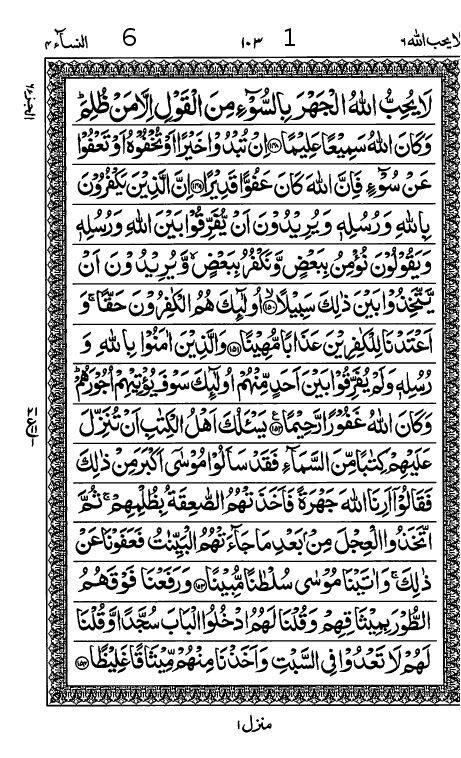 لا یحب اللہ ٦ 1 ١٠٣ 6 النسآء ٤
لَا يُحِبُّ اللهُ الْجَهْرَ بِالسُّوْٓءِ مِنَ الْقَوْلِ اِلَّا مَنْ ظُلِمَ ؕ
وَكَانَ اللهُ سَمِيْعًا عَلِيْمًا ﴿١٤٨﴾ اِنْ تُبْدُوْا خَيْرًا اَوْ تُخْفُوْهُ اَوْ تَعْفُوْا
عَنْ سُوْٓءٍ فَاِنَّ اللهَ كَانَ عَفُوًّا قَدِيْرًا ﴿١٤٩﴾ اِنَّ الَّذِيْنَ يَكْفُرُوْنَ
بِاللهِ وَرُسُلِهٖ وَيُرِيْدُوْنَ اَنْ يُّفَرِّقُوْا بَيْنَ اللهِ وَرُسُلِهٖ
وَيَقُوْلُوْنَ نُؤْمِنُ بِبَعْضٍ وَّنَكْفُرُ بِبَعْضٍ ۙ وَّيُرِيْدُوْنَ اَنْ
يَّتَّخِذُوْا بَيْنَ ذٰلِكَ سَبِيْلًا ﴿١٥٠﴾ اُولٰٓئِكَ هُمُ الْكٰفِرُوْنَ حَقًّا ۚ وَ
اَعْتَدْنَا لِلْكٰفِرِيْنَ عَذَابًا مُّهِيْنًا ﴿١٥١﴾ وَالَّذِيْنَ اٰمَنُوْا بِاللهِ وَ
رُسُلِهٖ وَلَمْ يُفَرِّقُوْا بَيْنَ اَحَدٍ مِّنْهُمْ اُولٰٓئِكَ سَوْفَ يُؤْتِيْهِمْ اُجُوْرَهُمْ ؕ
وَكَانَ اللهُ غَفُوْرًا رَّحِيْمًا ﴿١٥٢﴾ يَسْـَٔلُكَ اَهْلُ الْكِتٰبِ اَنْ تُنَزِّلَ
عَلَيْهِمْ كِتٰبًا مِّنَ السَّمَآءِ فَقَدْ سَاَلُوْا مُوْسٰٓى اَكْبَرَ مِنْ ذٰلِكَ
فَقَالُوْٓا اَرِنَا اللهَ جَهْرَةً فَاَخَذَتْهُمُ الصّٰعِقَةُ بِظُلْمِهِمْ ۚ ثُمَّ
اتَّخَذُوا الْعِجْلَ مِنْۢ بَعْدِ مَا جَآءَتْهُمُ الْبَيِّنٰتُ فَعَفَوْنَا عَنْ
ذٰلِكَ ۚ وَاٰتَيْنَا مُوْسٰى سُلْطٰنًا مُّبِيْنًا ﴿١٥٣﴾ وَرَفَعْنَا فَوْقَهُمُ
الطُّوْرَ بِمِيْثَاقِهِمْ وَقُلْنَا لَهُمُ ادْخُلُوا الْبَابَ سُجَّدًا وَّقُلْنَا
لَهُمْ لَا تَعْدُوْا فِى السَّبْتِ وَاَخَذْنَا مِنْهُمْ مِّيْثَاقًا غَلِيْظًا ﴿١٥٤﴾
منزل ١